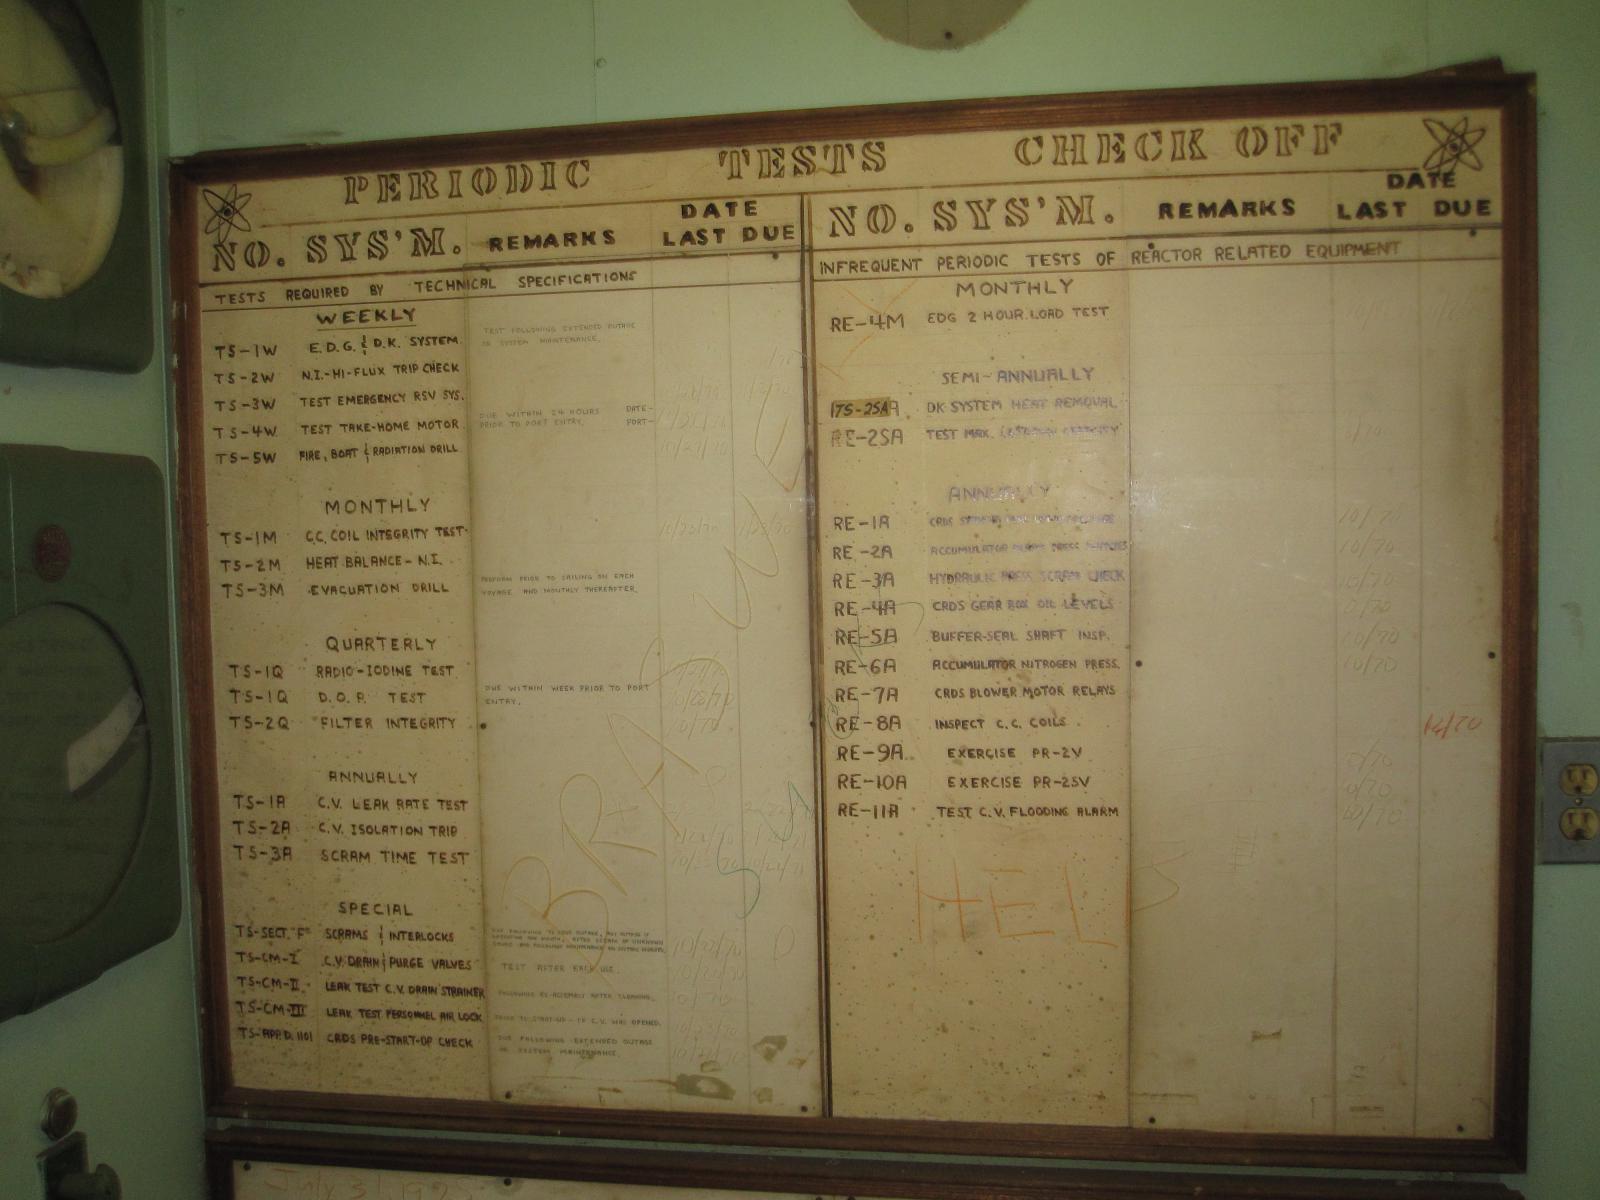 PERIODIC TESTS CHECK OFF
NO. SYS'M. REMARKS DATE LAST DUE
TESTS REQUIRED BY TECHNICAL SPECIFICATIONS
WEEKLY
TEST FOLLOWING EXTENDED OUTAGE
OR SYSTEM MAINTENANCE.
TS-1W E.D.G. & D.K. SYSTEM.
TS-2W N.I.-HI-FLUX TRIP CHECK
TS-3W TEST EMERGENCY RSV SYS.
DUE WITHIN 24 HOURS DATE-
PRIOR TO PORT ENTRY. PORT-
TS-4W TEST TAKE-HOME MOTOR.
TS-5W FIRE, BOAT & RADIATION DRILL
MONTHLY
TS-1M C.C. COIL INTEGRITY TEST 10/23/70
TS-2M HEAT BALANCE-N.I.
TS-3M EVACUATION DRILL
PERFORM PRIOR TO SAILING ON EACH
VOYAGE AND MONTHLY THEREAFTER.
QUARTERLY
TS-1Q RADIO-IODINE TEST
TS-1Q D.O.P. TEST
DUE WITHIN WEEK PRIOR TO PORT
ENTRY.
TS-2Q FILTER INTEGRITY
ANNUALLY
TS-1A C.V. LEAK RATE TEST
TS-2A C.V. ISOLATION TRIP
TS-3A SCRAM TIME TEST
SPECIAL
TS-SECT."F" SCRAMS & INTERLOCKS
TS-CM-I C.V. DRAIN & PURGE VALVES TEST AFTER EACH USE.
TS-CM-II LEAK TEST C.V. DRAIN STRAINER
TS-CM-III LEAK TEST PERSONNEL AIR LOCK PRIOR TO START-UP - IF C.V. WAS OPENED.
TS-APP.D.1101 CRDS PRE-START-UP CHECK
DUE FOLLOWING EXTENDED OUTAGE
OR SYSTEM MAINTENANCE.
NO. SYS'M. REMARKS DATE LAST DUE
INFREQUENT PERIODIC TESTS OF REACTOR RELATED EQUIPMENT
MONTHLY
RE-4M EDG 2 HOUR LOAD TEST
SEMI-ANNUALLY
TS-2SA DK SYSTEM HEAT REMOVAL
RE-2SA TEST MAX.
ANNUALLY
RE-1A CRDS 10/70
RE-2A ACCUMULATOR PRESS 10/70
RE-3A HYDRAULIC PRESS SCRAM CHECK 10/70
RE-4A CRDS GEAR BOX OIL LEVELS 10/70
RE-5A BUFFER-SEAL SHAFT INSP. 10/70
RE-6A ACCUMULATOR NITROGEN PRESS. 10/70
RE-7A CRDS BLOWER MOTOR RELAYS
RE-8A INSPECT C.C. COILS
RE-9A EXERCISE PR-2V
RE-10A EXERCISE PR-2SV
RE-11A TEST C.V. FLOODING ALARM 10/70
HEL
July 31, 19